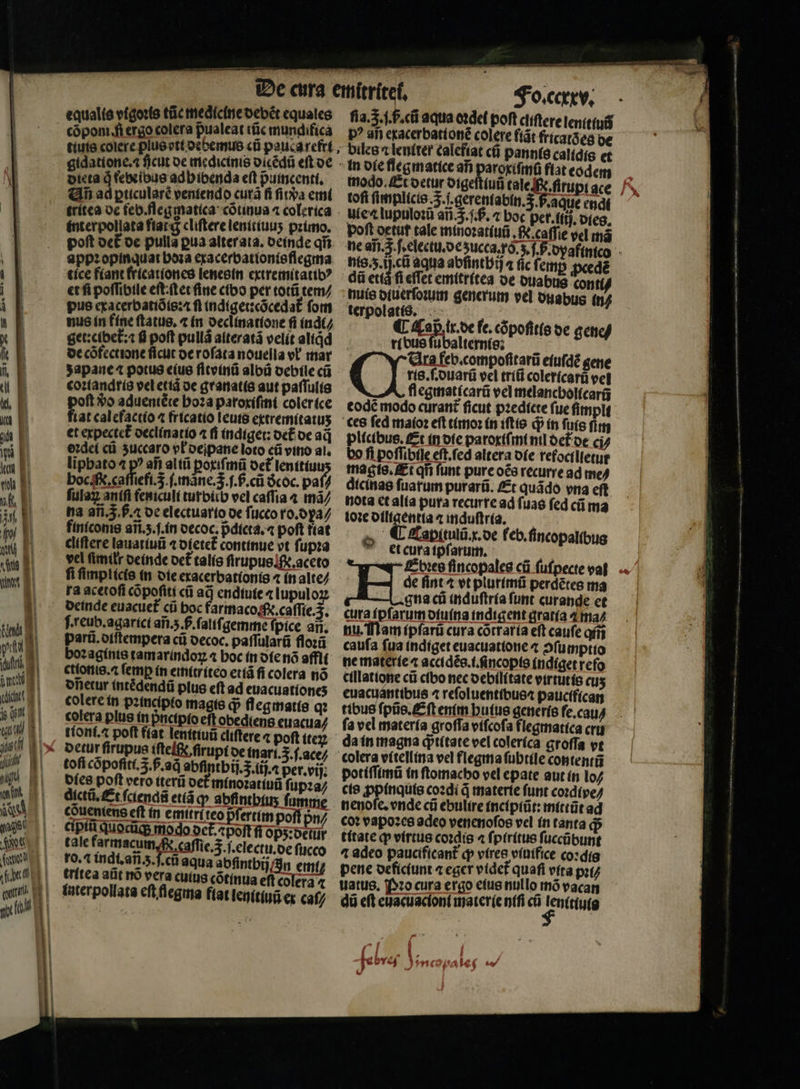 De cura emitritei. Fo.ccxxv.
equalis vigoris tūc medicine debēt equales
cōponi.si ergo colera p̄ualeat tūc mundifica
tiuis colere plus vti debemus cū pauca refri
gidatione.⁊ sicut de medicinis dicēdū est de
dieta q̄ febribus adhibenda est p̄nincenti.
An̄ ad pticularē veniendo curā si sit v̄a emi
tritea de feb.flegmatica cōtinua ⁊ colerica
interpollata fiat q̄ clistere lenitiuuȝ primo.
post det̄ de pulla qua alterata. deinde qn̄
app̄ropinquat hora exacerbationis flegma
tice fiant fricationes lenes in extremitatibꝰ
et si possibile est:stet sine cibo per totū tem/
pus exacerbatiōis:⁊ si indiget:cōcedat̄ som
nus in fine status. ⁊ in declinatione si indi/
get:cibet̄:⁊ si post pullā alteratā velit aliqd̄
de cōfectione sicut de rosata nouella vl̄ mar
ȝapane ⁊ potus eius sit vinū albū debile cū
coriandris vel etiā de granatis aut passulis
post v̄o aduentēte hora paroxismi colerice
fiat calefactio ⁊ fricatio leuis extremitatuȝ
et expectet̄ declinatio ⁊ si indiget: det̄ de aq̄
ordei cū ȝuccaro vl̄ de pane loto cū vino al.
liphato ⁊ pꝰ an̄ aliū poxismū det̄ lenitiuuȝ
hoc.℞.cassiefi.ʒ.ſ.māne.ʒ.ſ.ß.cū decoc. pas/
sulaꝝ anisi feniculi turbith vel cassia ⁊ mā/
na an̄.ʒ.ß.⁊ de electuario de succo ro.dya/
finiconis an̄.ʒ.ſ.in decoc. p̄dicta.⁊ post fiat
clistere lauatiuū ⁊ dietet̄ continue vt supra
vel simil'r deinde det̄ talis sirupus.℞.aceto
si simplicis in die exacerbationis ⁊ in alte/
ra acetosi cōpositi cū aq̄ endiuie ⁊ lupuloꝝ
deinde euacuet̄ cū hoc farmaco.℞.cassie.ʒ.
ſ.reub.agarici an̄.ʒ.ß.salisgemme spice an̄.
parū.distempera cū decoc. passularū florū
boraginis tamarindoꝝ ⁊ hoc in die nō affli
ctionis.⁊ semp̄ in emitriteo etiā si colera nō
dn̄etur intēdendū plus est ad euacuationeȝ
colere in principio magis q̄ flegmatis qr
colera plus in p̄ncipio est obediens euacua/
tioni.⁊ post fiat lenitiuū clistere ⁊ post iteꝝ
detur sirupus iste.℞.sirupi de inari.ʒ.ſ.ace/
tosi cōpositi.ʒ.ß.aq̄ absinthij.ʒ.iij.⁊ per.vij.
dies post vero iterū det̄ minoratiuū supra/
dictū.Et sciendū etiā ꝙ absinthiuȝ summe
cōueniens est in emitriteo p̄sertim post p̄n/
cipiū quocūꝙ modo det̄.⁊post si opȝ:detur
tale farmacum.℞.cassie.ʒ.ſ.electu.de succo
ro.⁊ indi.an̄.ʒ.ſ.cū aqua absinthij.In emi/
tritea aūt nō vera cuius cōtinua est colera ⁊
interpollata est flegma fiat lenitiuū ex cas/
sia.ʒ.ſ.ß.cū aqua ordei post clistere lenitiuū
pꝰ an̄ exacerbationē colere fiāt fricatōes de
biles ⁊ leniter calefiat cū pannis calidis et
in die flegmatice an̄ paroxismū fiat eodem
modo.Et detur digestiuū tale.℞.sirupi ace
tosi simplicis.ʒ.ſ.gereniabin.ʒ.ß.aque endi
uie ⁊ lupulorū an̄.ʒ.ſ.ß. ⁊ hoc per.iiij. dies.
post detur̄ tale minoratiuū.℞.cassie vel mā
ne an̄.ʒ.ſ.electu.de ȝucca.ro.ʒ.ſ.ß.dyafinico
nis.ʒ.ij.cū aqua absinthij ⁊ sic semp̄ ꝓcedē
dū etiā si esset emitritea de duabus conti/
nuis diuersorum generum vel duabus in/
terpolatis.
¶ Cap̄.ix.de fe. cōpositis de gene/
ribus subalternis:
CUra feb.compositarū eiusdē gene
ris.s.duarū vel triū colericarū vel
flegmaticarū vel melancholicarū
eodē modo curant̄ sicut predicte sue simpli
ces sed maior est timor in istis q̄ in suis sim
plicibus. Et in die paroxismi nil det̄ de ci/
bo si possibile est.sed altera die refocilletur
magis.Et qn̄ sunt pure oēs recurre ad me/
dicinas suarum purarū. Et quādo vna est
nota et alia pura recurre ad suas sed cū ma
iore diligentia ⁊ industria.
¶ Capitulū.x.de feb.sincopalibus
et cura ipsarum.
FEbres sincopales cū suspecte val
de sint ⁊ vt plurimū perdētes ma
gna cū industria sunt curande et
cura ipsarum diuina indigent gratia ⁊ ma/
nu.Nam ipsarū cura cōtraria est cause qn̄
causa sua indiget euacuatione ⁊ ↄsumptio
ne materie ⁊ accidēs.i.sincopis indiget refo
cillatione cū cibo nec debilitate virtutis cuȝ
euacuantibus ⁊ resoluentibus⁊ paucifican
tibus spūs.Est enim huius generis fe.cau/
sa vel materia grossa viscosa flegmatica cru
da in magna q̄titate vel colerica grossa vt
colera vitellina vel flegma subtile contentū
potissimū in stomacho vel epate aut in lo/
cis ꝓpinquis cordi q̄ materie sunt cordi ve/
nenose.vnde cū ebulire incipiūt: mittūt ad
cor vapores adeo venenosos vel in tanta q̄
titate ꝙ virtus cordis ⁊ spiritus succūbunt
⁊ adeo paucificant̄ ꝙ vires viuifice cordis
pene deficiunt ⁊ eger videt̄ quasi vita pri/
uatus. Pro cura ergo eius nullo mō vacan
dū est euacuacioni materie nisi cū lenitiuis
f
febres sincopales